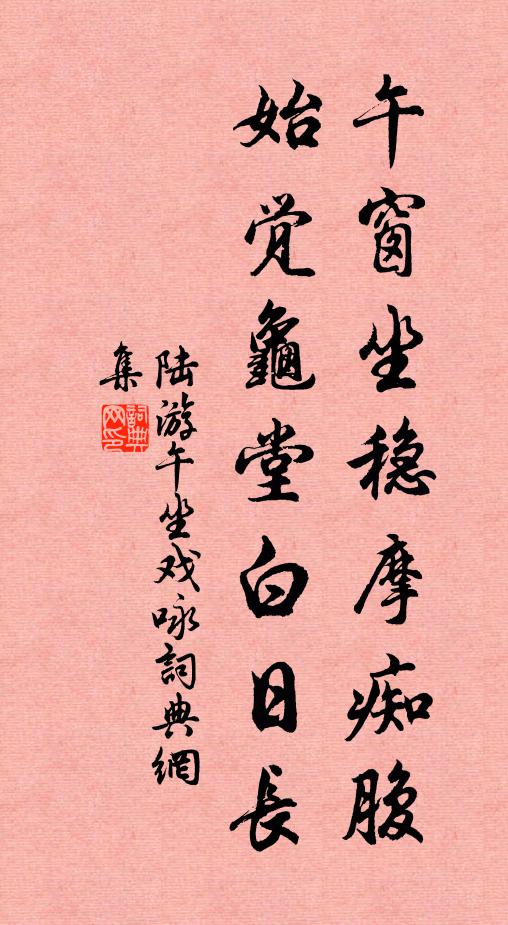 午窗坐稳摩痴腹
始觉龜堂白日長
陆游午坐戏咏詞典網
集
詞典
网印